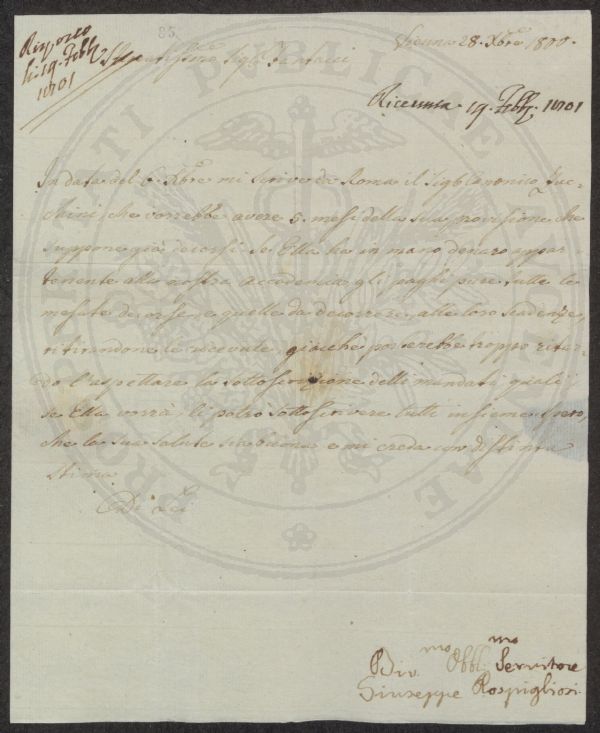 85
Risposto
li 19. Febb.
1801
Vienna 28. Xbre 1800.
Sigr. Fantacci
Ricevuta. 19. Febb. 1801
In data del 6. Xbre mi scrive da Roma il Sigr. Canonico
che vorrebbe avere 5. mesi della sua provisione, che
suppone già decorsi. Se Ella ha in mano denaro appar-
tenente alla nostra accademia gli paghi pure tutte le
mesate decorse, e quelle da decorrere alle loro scadenze,
ritirandone le ricevute, giacchè porterebbe troppo ritar-
do l'aspettare la sottoscrizione delli mandati, quali
se Ella vorrà, li potrò sottoscrivere tutti insieme. Spero,
che la sua salute sia buona e mi creda con distinta
stima
Di Lei
Div.mo Obbl.mo Servitore
Giuseppe Rospigliosi
PROSPERITATI PUBLICAE AUGENDAE